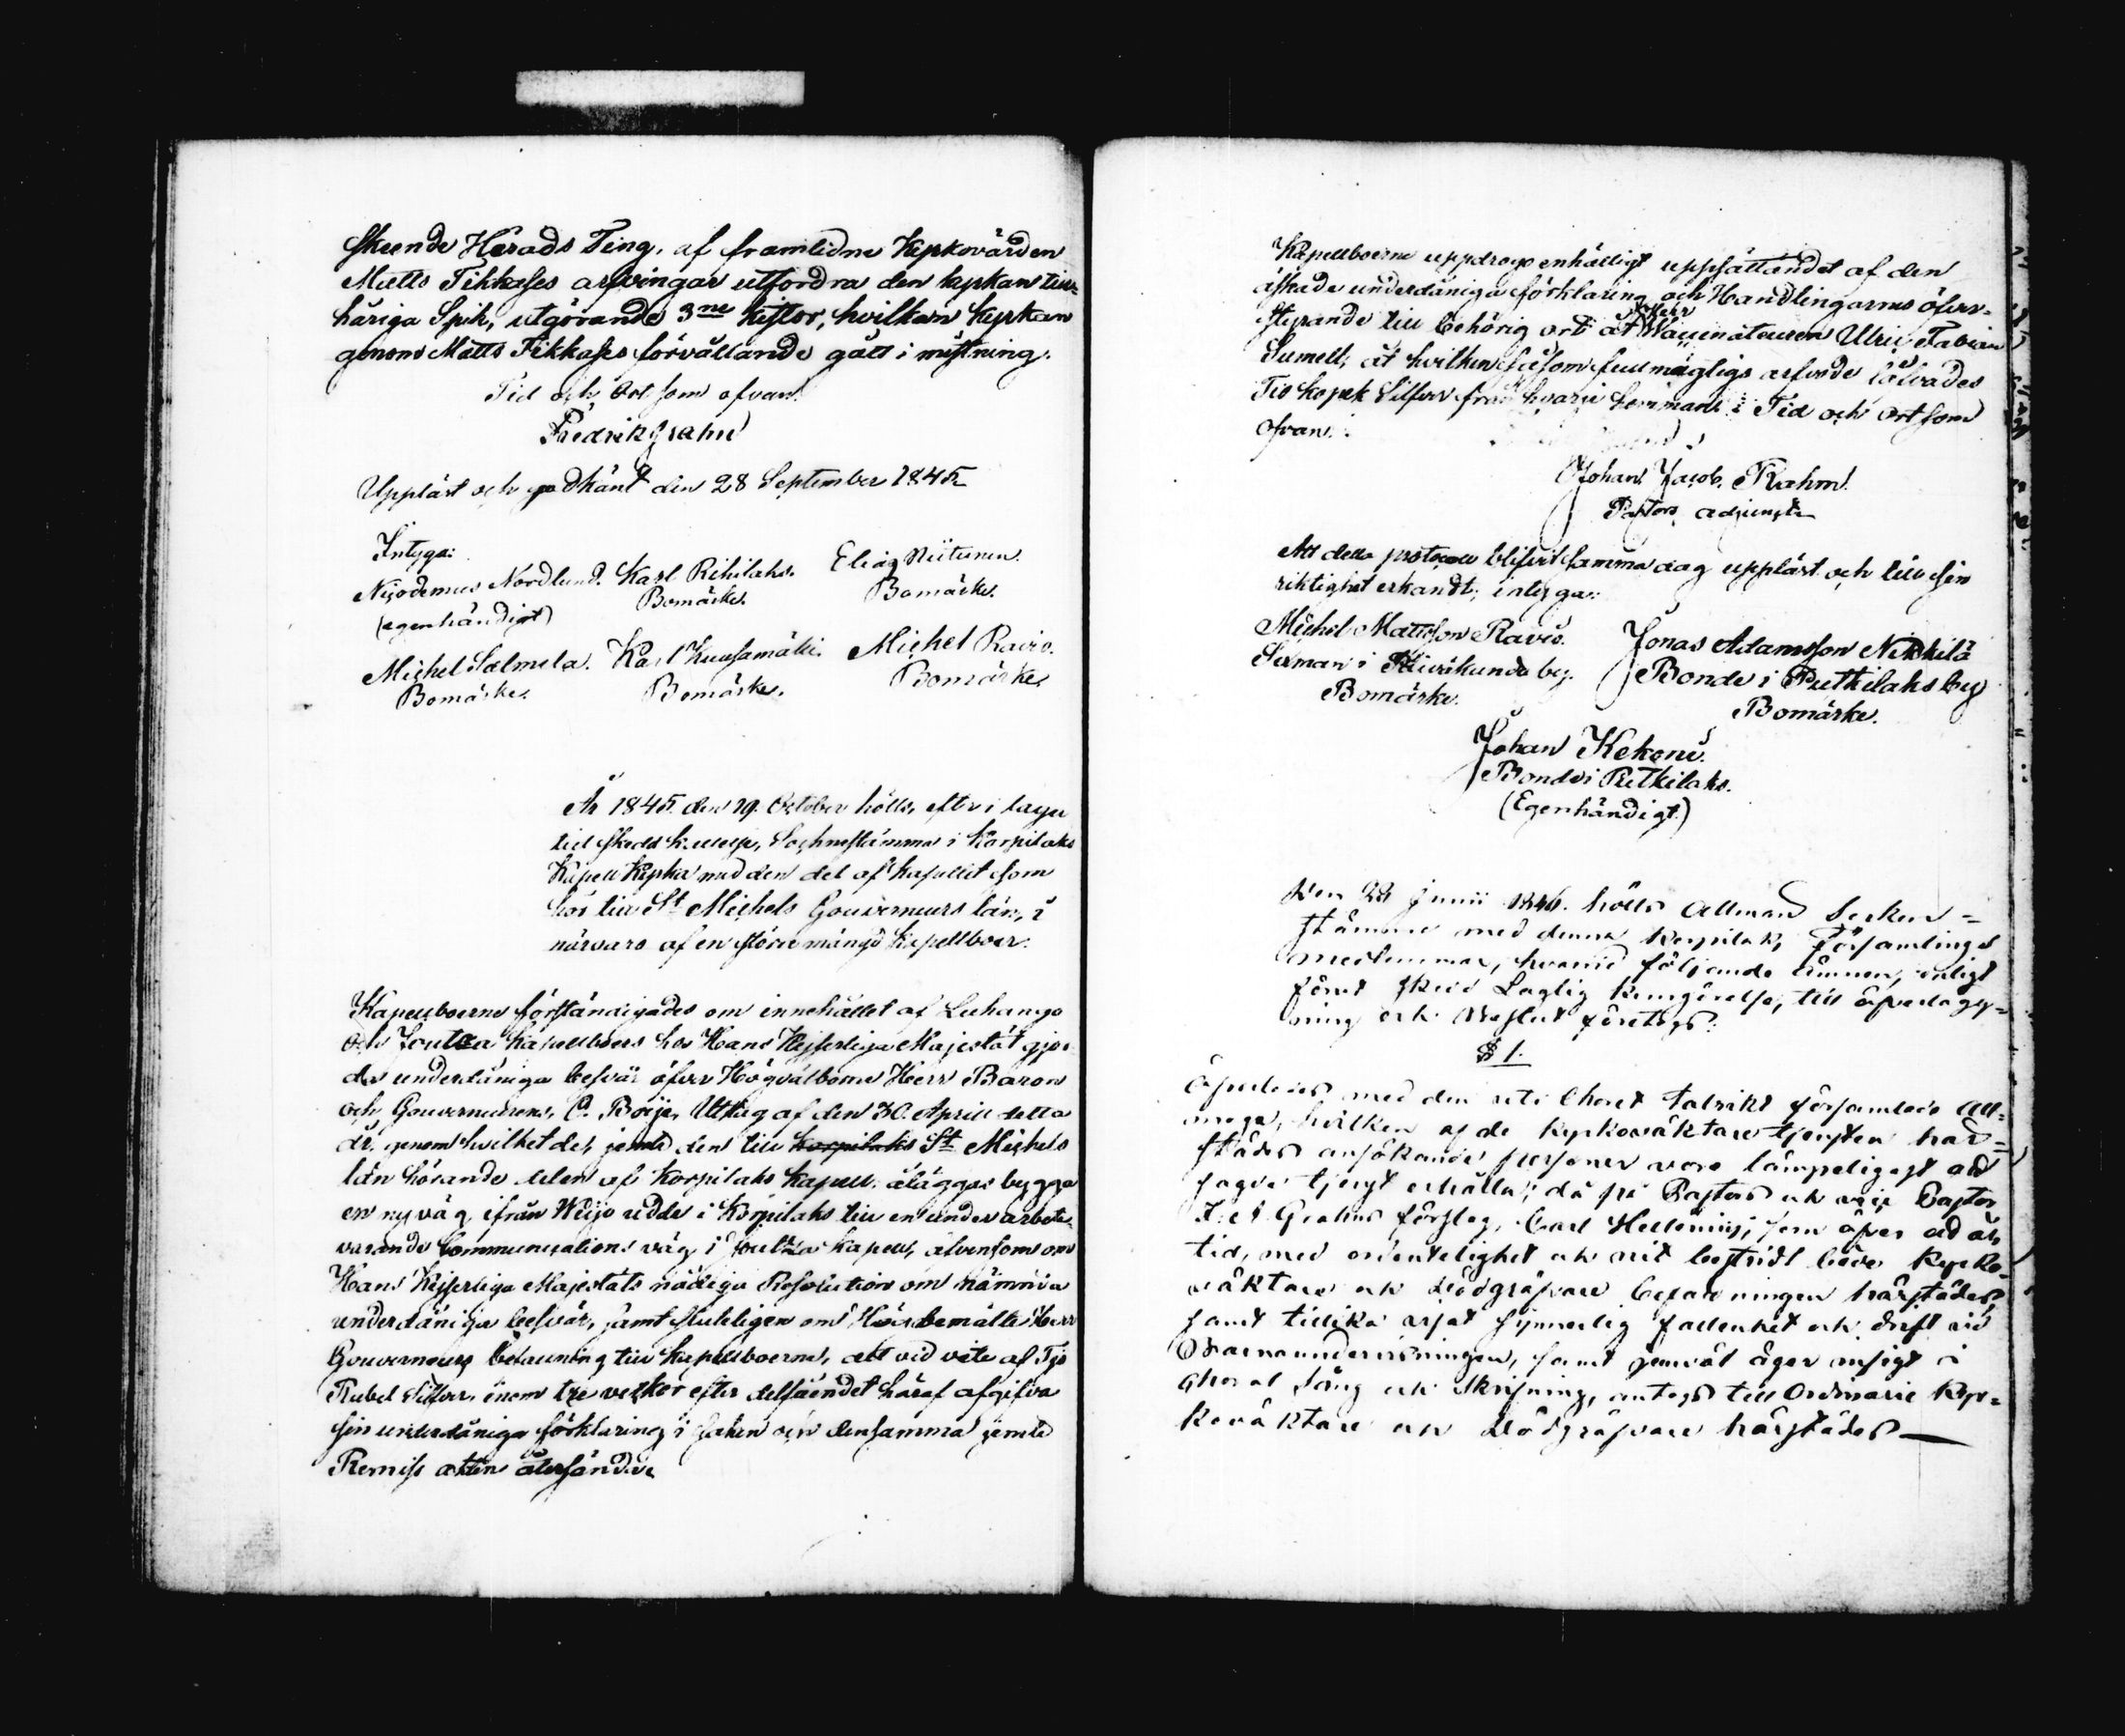 skeende Härads Ting, af framlidne Kyrkovärden
Matts Tikkases arfvingar utfordra den kyrkan till-
häriga Spik, utgörande 3ne kistor, hvilken kyrkan
genom Matts Tikkases förvållande gått i mistning.
Tid och Ort som ofvan.
Fredrik Grahn
Uppläst och godkänt den 28 September 1845.
Intyga:
Nicodemus Nordlund. Karl Rihilaks. Elias Niitunen.
(egenhändigt) Bomärke. Bomärke.
Michel Salmela. Karl Kuusamäki. Michel Ravio.
Bomärke. Bomärke. Bomärke.
År 1845 den 19. October hölls, efter i laga
tid skedd Sochnestämma i Korpilaks
Kapell Kyrka med den del af kapellet som
hör till St Michels Gouverneurs län, i
närvaro af en större mängd kapellboer.
Kapellboerne förständigades om innehållet af Luhango
och Joutza kapellboers hos Hans Kejserliga Majestät gjor-
da underdåniga besvär öfver Högvälborne Herr Baron
och Gouverneurens, C. Boije, Utslag af den 30. April detta
år, genom hvilket de, jemte den till Korpilaks St Michels
län hörande delen af Korpilaks kapell, ålägges bygga
en ny väg ifrån Weijo udde i Korpilaks till en under arbete
varande Communications väg i Joutza kapell, älvensom om
Hans Kejserliga Majestäts nådiga Resolution om nämnda
underdåniga besvär, samt sluteligen om Högbemälte Herr
Gouverneurs befallning till kapellboerne, att vid vite af Tjo
Rubel Silfver, inom tre veckor efter delfåendet häraf afgifva
sin underdåniga förklaring i saken och densamma jemte
Remiss akten återsända.
Kapellboerne uppdrogo enhälligt uppsättandet af den
äskade underdåniga förklaring och Handlingarnes öfver-
styrande till behörig ort åt Herr Vaccinateuren Ulric Fabian
Sumell, åt hvilken såsom fullmägtigs arfvode låfvades
Tio kopek Silfver från hvarje hemman: Tid och ort som
ofvan.
Johan Jacob Rahm.
Pastors adjunct.
Att detta protocoll blifvit samma dag uppläst och till sin
riktighet erkändt, intyga:
Michel Mattsson Ravio. Jonas Adamsson Nikkilä
Sexman i by. Bonde i Putkilaks by
Bomärke. Bomärke.
Johan Kekoni.
Bonde i Putkilaks.
(Egenhändigt.)
Den 28 Junii 1846. hölls Allmän Socken-
stämma med denna Korpilaks Församlings
medlemmar, hvarvid följande ämnen, enligt
förut skedd Laglig kungörelse, till öfverlägg-
ning och Beslut företogs:
§ 1.
Öfverlades med den uti Choret talrikt församlade All-
moge, hvilken af de Kyrkoväktare tjensten här-
städes ansökande personer vore lämpeligast att
sagde tjenst erhålla; då på Pastors och vice Pastor
Grahns förslag, Carl Hellenius, som öfver ett års
tid, med ordentelighet och nit bestridt både Kyrko-
väktare och Dödgräfvare befattningen härstädes,
samt tillika visat synnerlig fallenhet och drift vid
Barnaundervisningen, samt jemväl äger insigt i
Choral Sång och Skrifning, antogs till Ordinarie Kyr-
koväktare och Dödgräfvare härstädes —